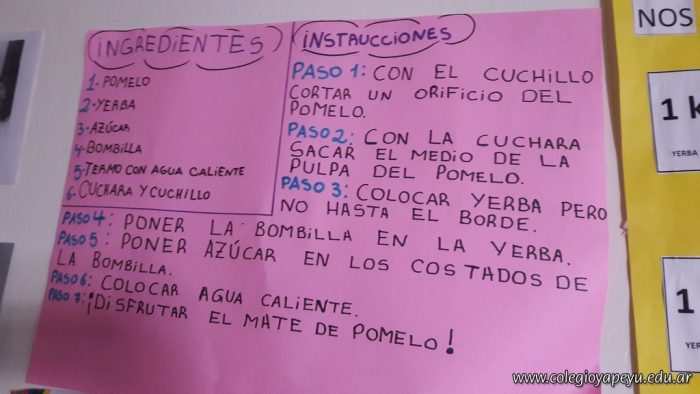 INGREDIENTES
1- POMELO
2- YERBA
3- AZÚCAR
4- BOMBILLA
5- TERMO CON AGUA CALIENTE
6- CUCHARA Y CUCHILLO
INSTRUCCIONES
PASO 1: CON EL CUCHILLO
CORTAR UN ORIFICIO DEL
POMELO.
PASO 2: CON LA CUCHARA
SACAR EL MEDIO DE LA
PULPA DEL POMELO.
PASO 3: COLOCAR YERBA PERO
NO HASTA EL BORDE.
PASO 4: PONER LA BOMBILLA EN LA YERBA.
PASO 5: PONER AZÚCAR EN LOS COSTADOS DE
LA BOMBILLA.
PASO 6: COLOCAR AGUA CALIENTE.
PASO 7: ¡DISFRUTAR EL MATE DE POMELO!
NOS
1 k
YERBA
1
YER
www.colegioyapeyu.edu.ar